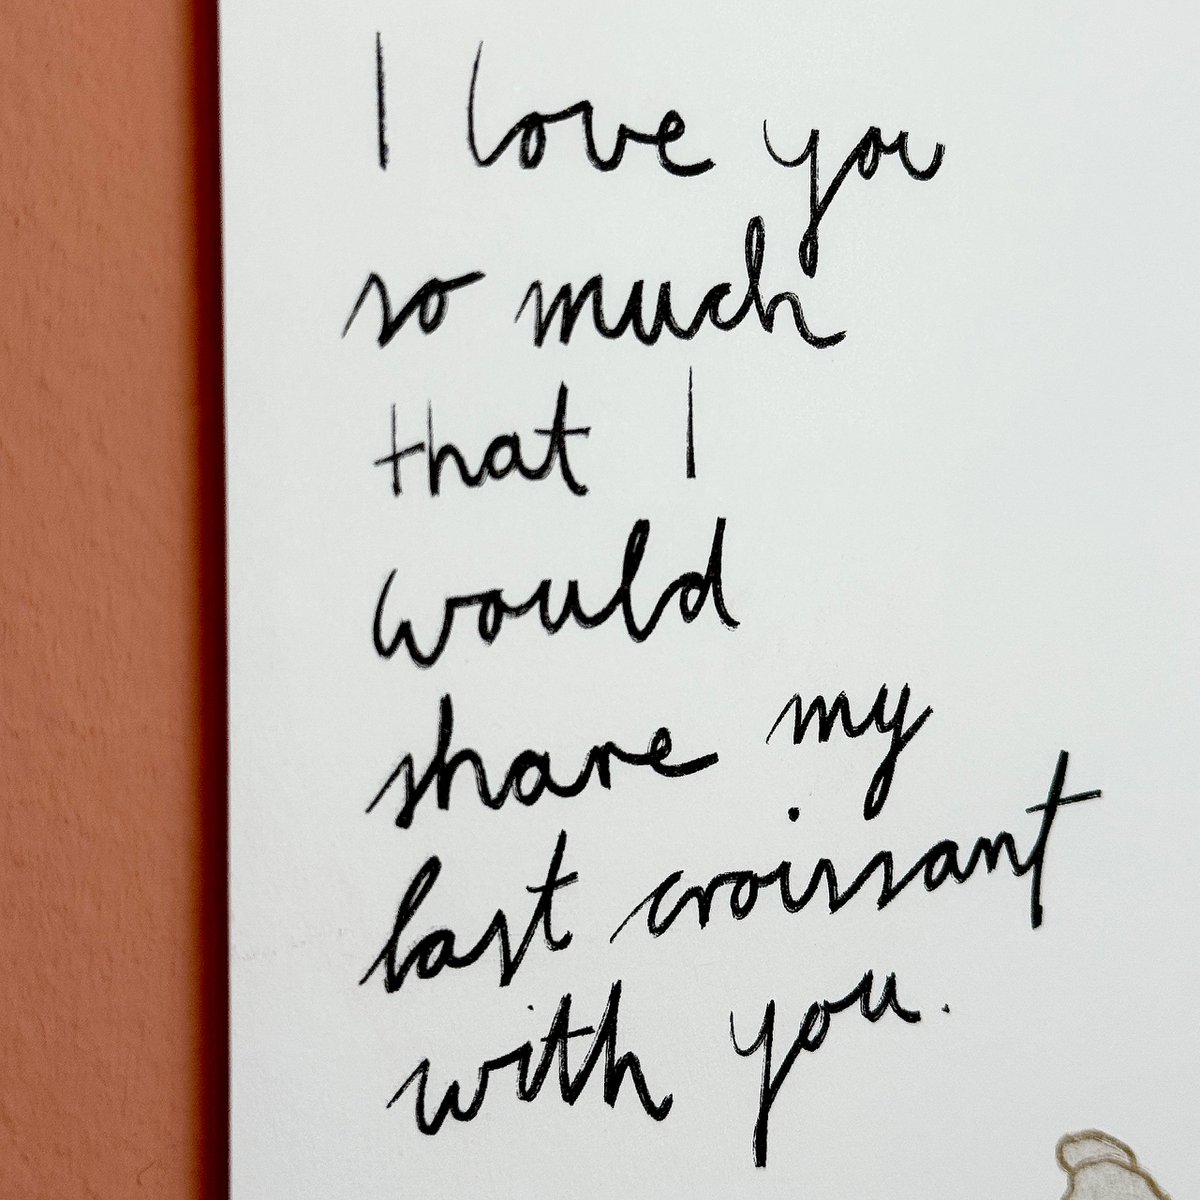 I love you
so much
that I
would
share my
last croissant
with you.